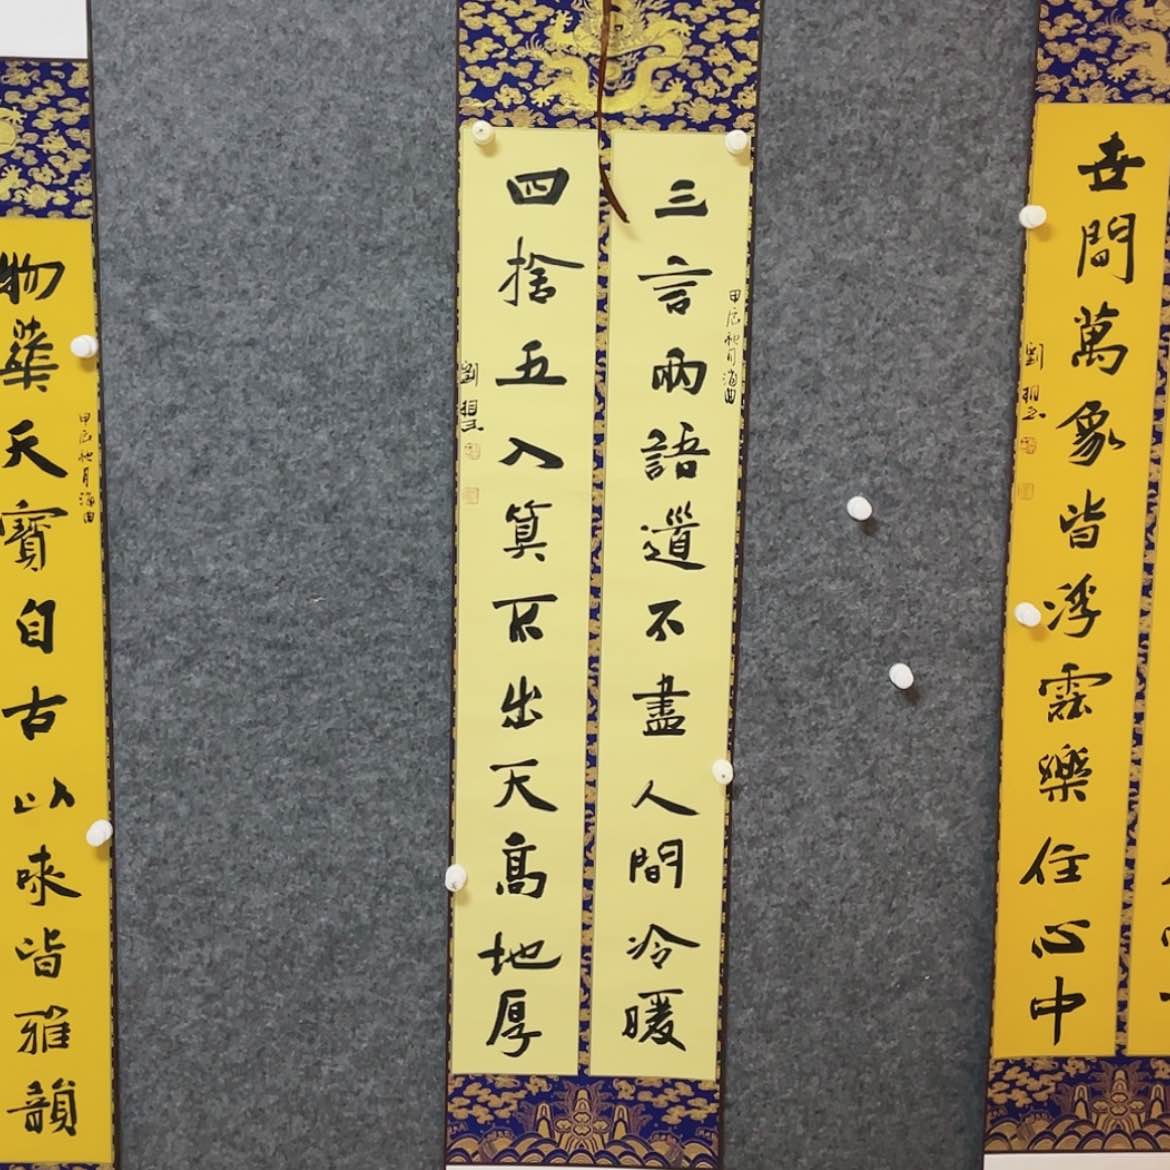 世間萬象皆浮雲樂住心中
劉
三言兩語道不盡人間冷暖
甲辰秋月海曲
四捨五入算不出天高地厚
劉
甲辰秋月海曲
物華天寶自古以來皆雅韻